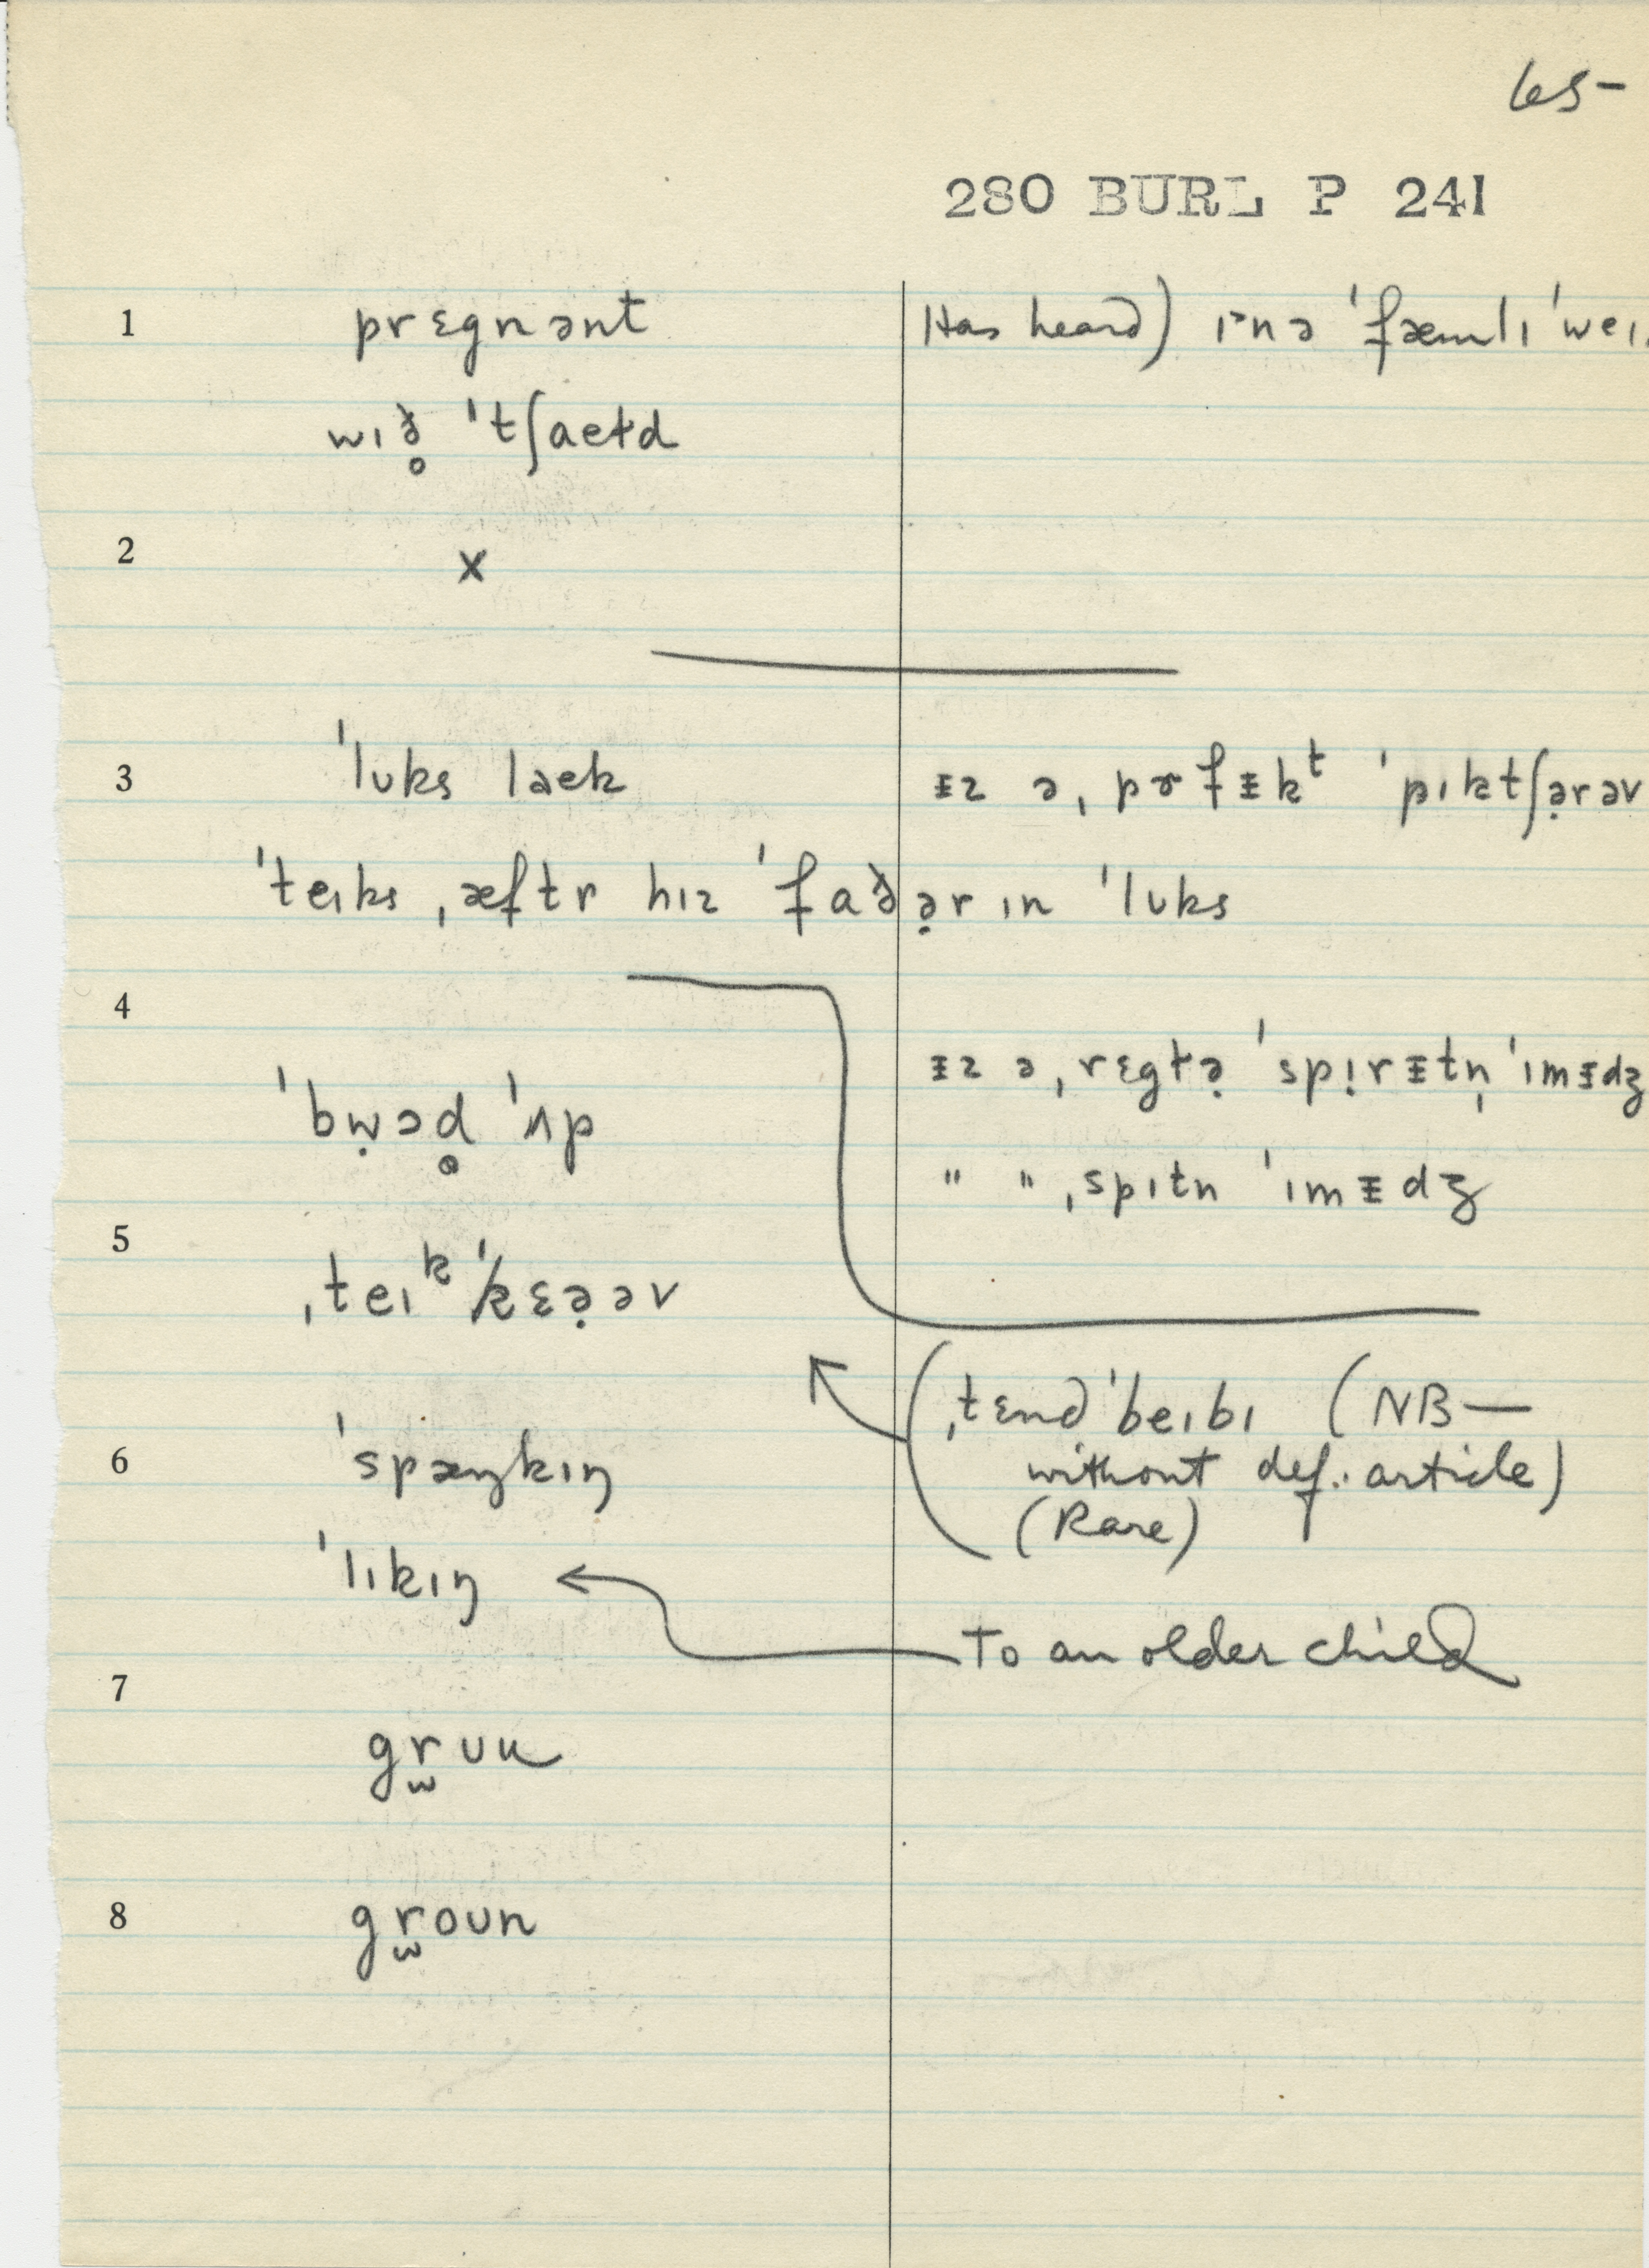 65-
280 BURL P 241
1 prɛgnənt Has heard) ɪ˃nə ˈfæmlɪ ˈweɪ
wɪð̥ ˈtʃaeɫd
2 x
3 ˈlʊks laek ᵻz ə ˌprɚfᵻkᵗ ˈpɪktʃə̣rəv
ˈteɪks ˌæftr hɪz ˈfaðə̣r ɪn ˈlʊks
4 ᵻz ə ˌrɛgɫə̣ ˈspɪ̣rᵻtn̩ ˈɪmᵻdʒ
ˈbẉɔd̥ ˈʌp
" " ˌspɪtn ˈɪmᵻdʒ
5 ˌteɪᵏ ˈkɛə̣əv
ˌtɛnd ˈbeɪbɪ (NB—
6 ˈspæŋkɪŋ without def. article)
(Rare)
ˈlɪkɪŋ
To an older child
7
gr̫ʊu
8 gr̫oʊn